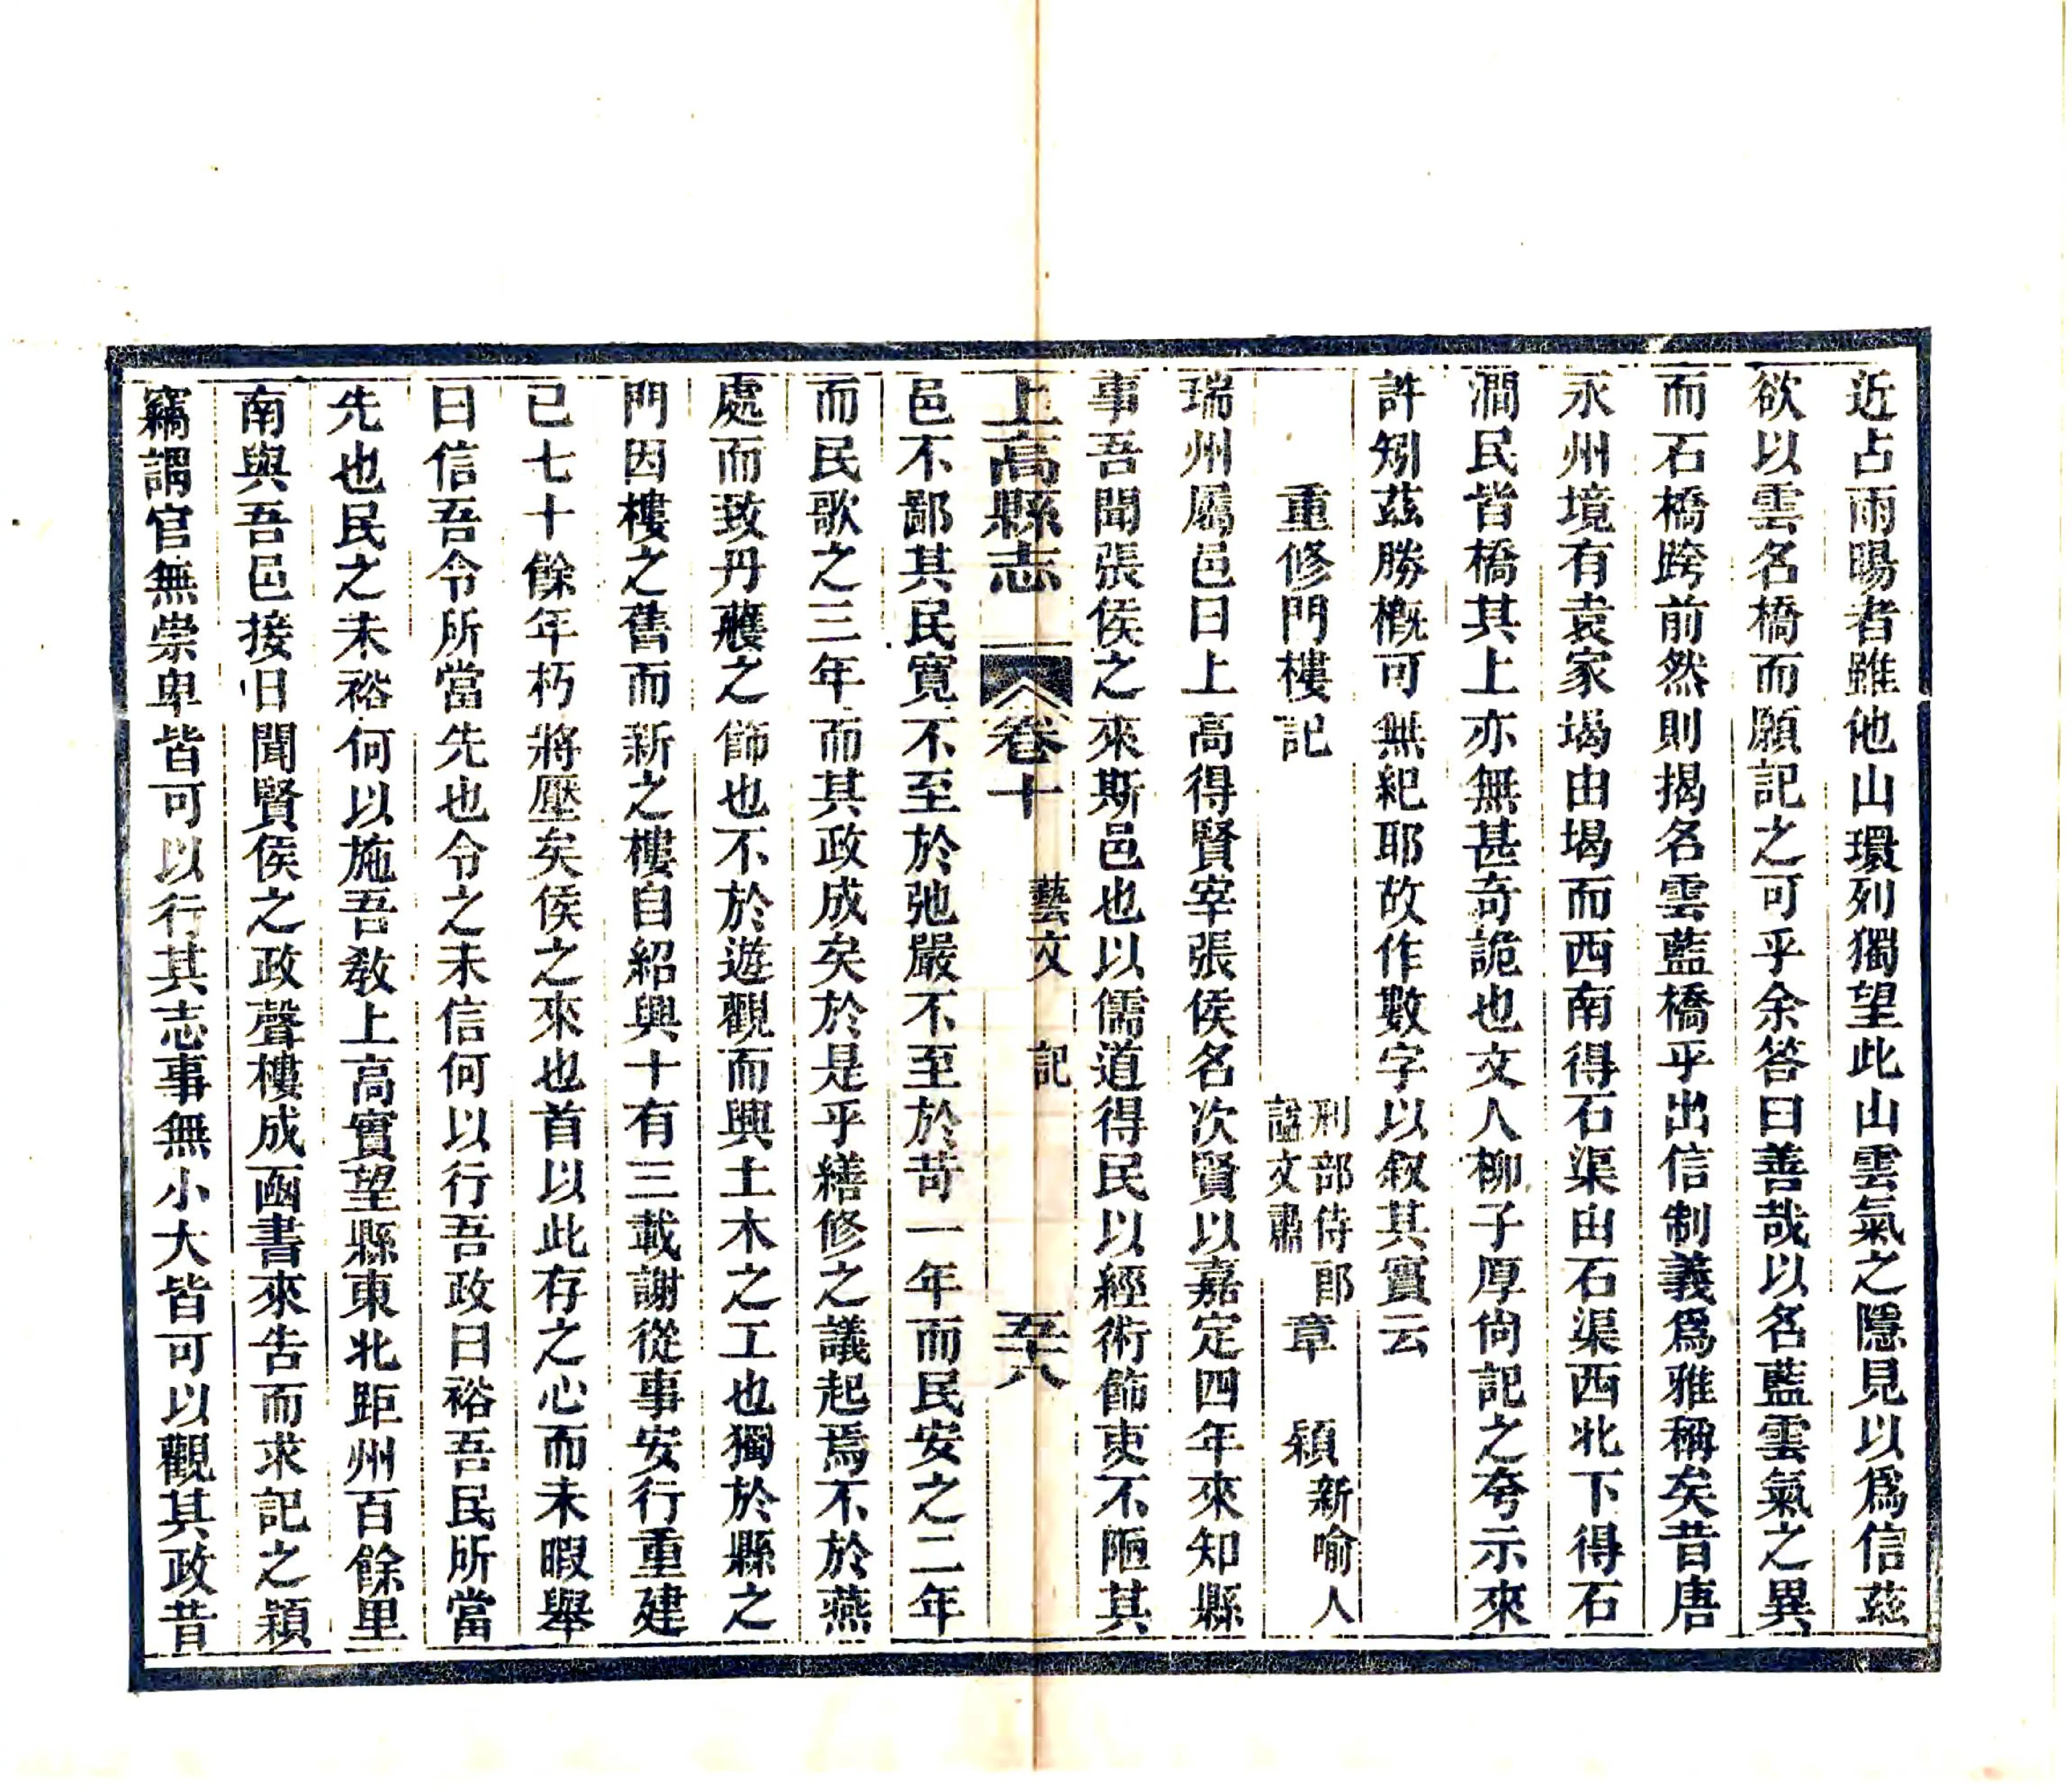 近占雨暘者雖他山環列獨望此山雲氣之隱見以爲信茲
欲以雲名橋而願記之可乎余答曰善哉以名藍雲氣之異
而石橋跨前然則揭名雲藍橋乎出信制義爲雅稱矣昔唐
永州境有袁家堨由堨而西南得石渠由石渠西北下得石
澗民皆橋其上亦無甚奇詭也文人柳子厚尙記之夸示來
許矧茲勝槪可無紀耶故作數字以叙其實云
重修門樓記
刑部侍郎
諡文肅
章 穎
新喻人
瑞州屬邑曰上高得賢宰張侯名次賢以嘉定四年來知縣
事吾聞張侯之來斯邑也以儒道得民以經術飾吏不陋其
上高縣志 卷十 藝文 記 五十八
邑不鄙其民寬不至於弛嚴不至於苛一年而民安之二年
而民歌之三年而其政成矣於是乎繕修之議起焉不於燕
處而致丹雘之飾也不於遊觀而興土木之工也獨於縣之
門因樓之舊而新之樓自紹興十有三載謝從事安行重建
已七十餘年朽將壓矣侯之來也首以此存之心而未暇舉
曰信吾令所當先也令之未信何以行吾政曰裕吾民所當
先也民之未裕何以施吾敎上高實望縣東北距州百餘里
南與吾邑接日聞賢侯之政聲樓成函書來告而求記之穎
竊謂官無崇卑皆可以行其志事無小大皆可以觀其政昔